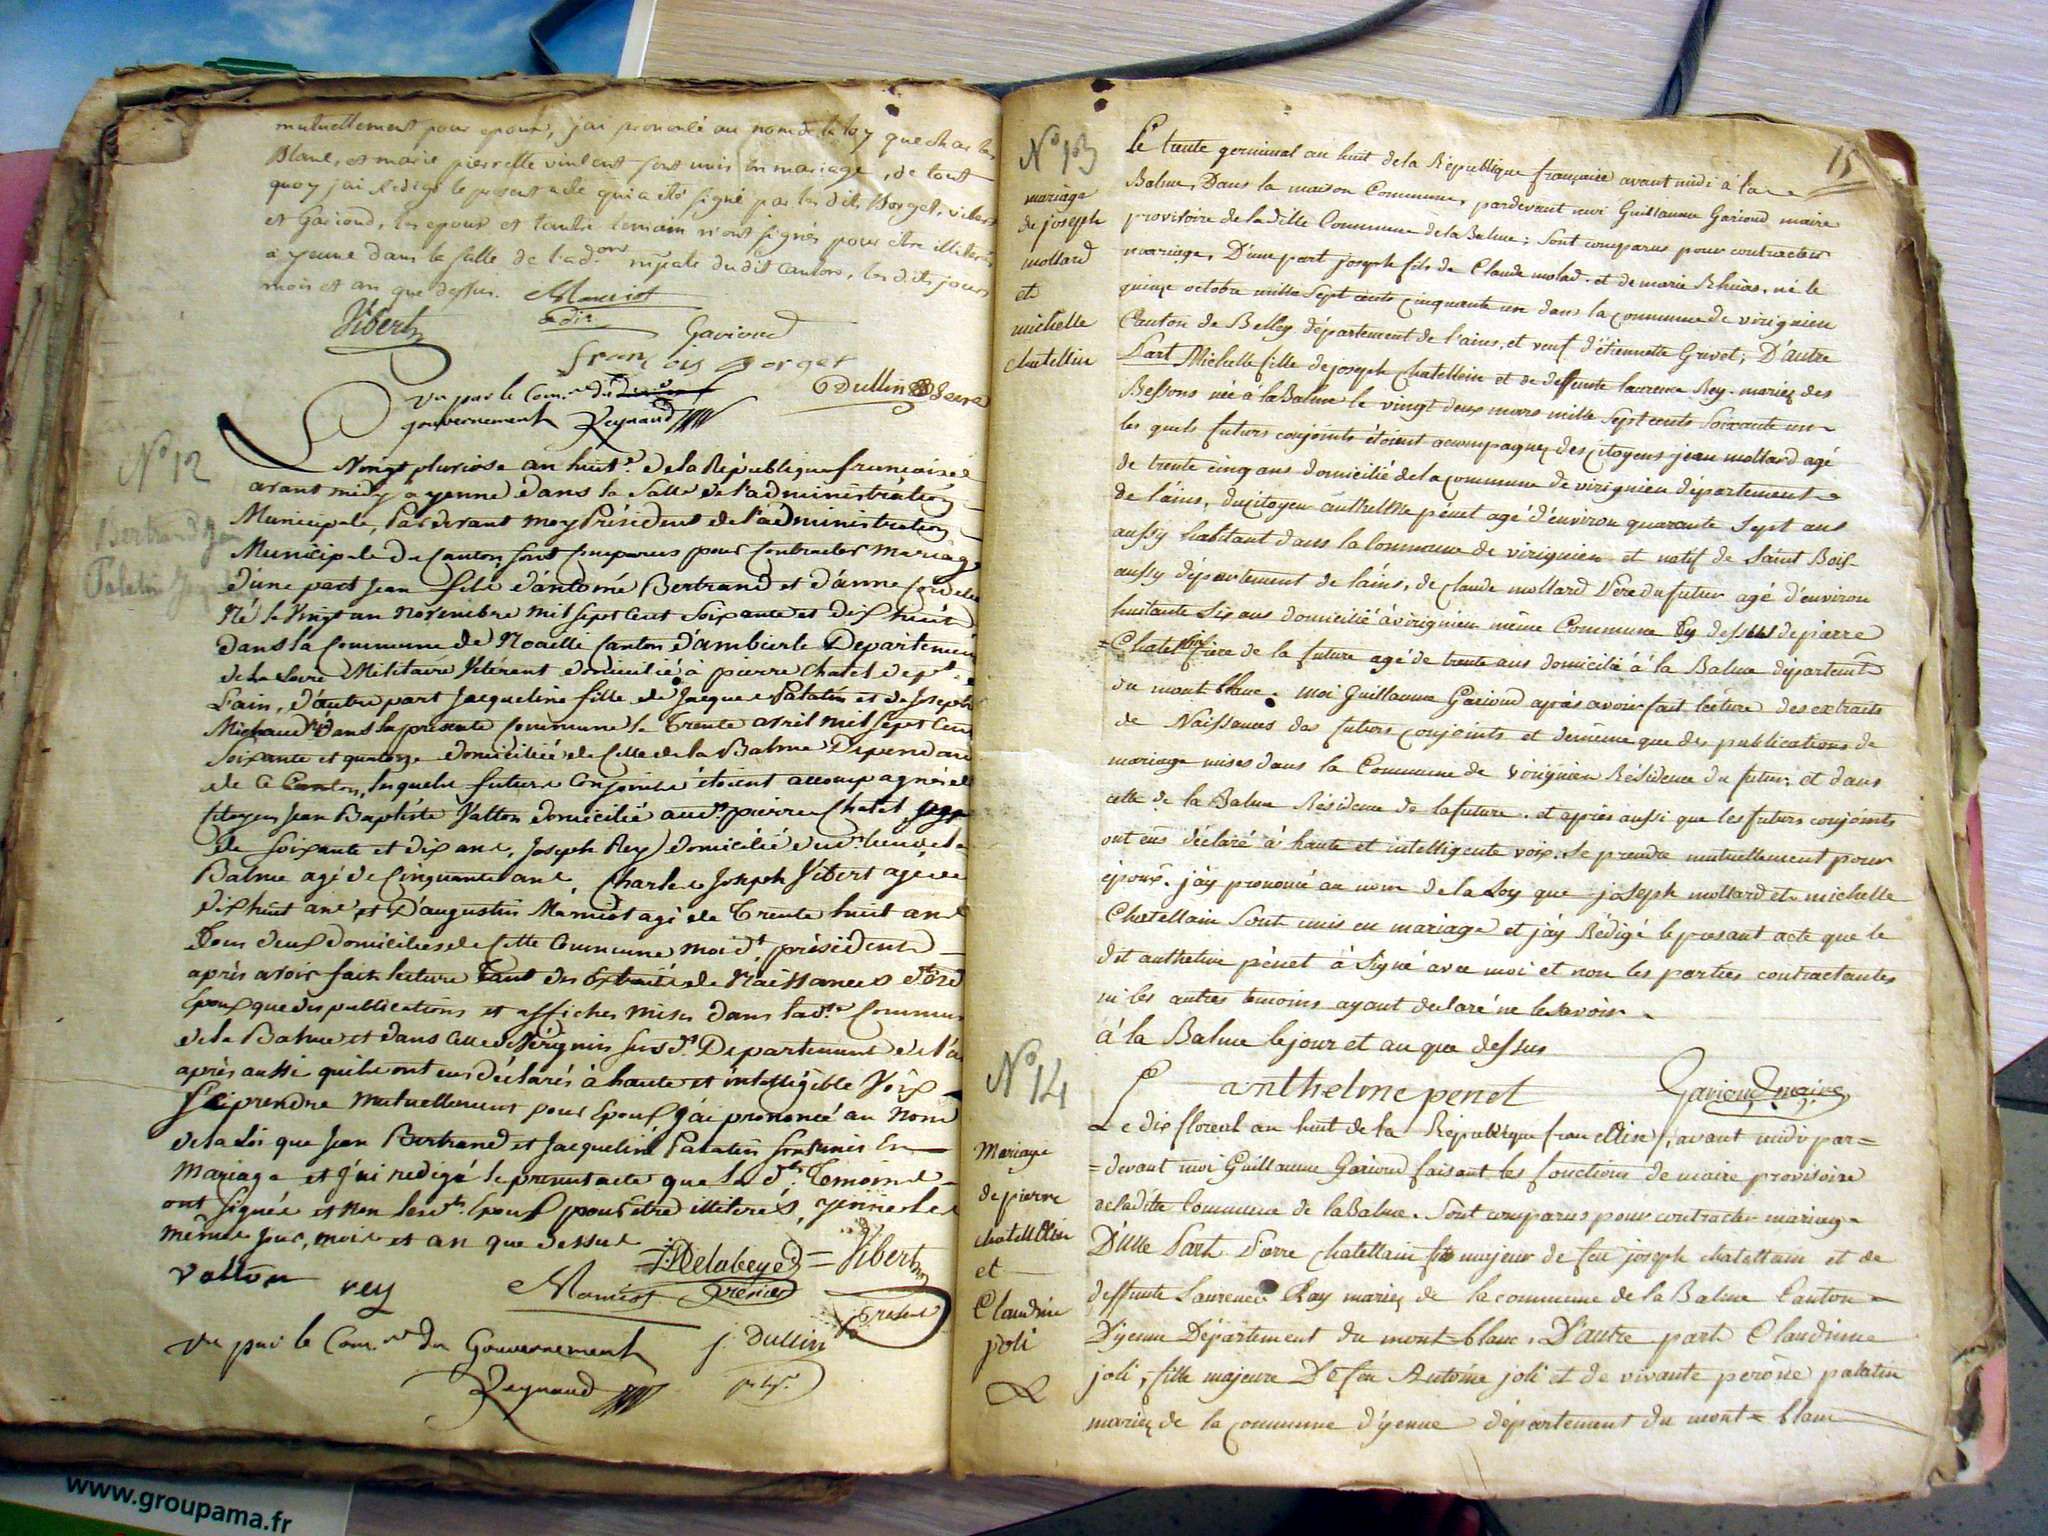 mutuellement pour epoux, j'ai prononcé au nom de la loy que charles
Blanc, et marie pierrette vinlent sont unis en mariage, de tout
quoy j'ai Redigé le present acte qui a été signé par les dits Borget, vibert
et Gariond, les epoux et l'autre temoin n'ont signés pour être illiterés
a yenne dans la salle de l'ad.on mpale dudit Canton, les dits jours
mois et an que dessus. Mamiot
Vibert
Gariond
françois Borget
Vu par le Com.re du
gouvernement Reynaud
J Dullin
N° 12
Bertrand Jean
Palatin
Le Vingt pluviose an huit.e de la République francaise
avant midy à yenne dans la Salle de l'administration
Municipale, Pardevant moy Président de l'administration
Municipale du Canton sont Comparus pour Contracter Mariage
d'une part Jean fils d'antoine Bertrand et d'anne
Né le Vingt un Novembre mil sept Cent Soixante et dix huit
dans la Commune de Noailli Canton d'ambierle Departement
de la Loire Militaire Vétérant domicilié à pierre Chatel dep.t
L'ain, d'autre part Jacqueline fille de Jacque Palatin et de Joseph
Michaud Née dans la présente Commune le Trente avril mil sept Cent
Soixante et quatorze domiciliée de Celle de la Balme Dependant
de Ce Canton, lesquels futurs Conjoints étoient accompagnés de
Citoyen Jean Baptiste Vatton domicilié aud.t pierre Chatel, agé
de soixante et dix ans, Joseph Rey domicilié aud.t lieu de la
Balme agé de Cinquante ans, Charle Joseph Vibert agé de
dix huit ans et D'augustin Mamiot agé de Trente huit ans
Tous deux domiciliés de Cette Commune moi d.t président
après avoir fait lecture tant des Extraits de Naissances d.ts
Epoux que des publications et affiches mises dans la d.te Commune
de la Balme et dans Celle de Virignin susd.t Departement de l'ain
après aussi qu'ils ont eus déclarés à haute et intelligible Voix
se prendre mutuellement pour Epoux j'ai prononcé au Nom
de la Loi que Jean Bertrand et Jacqueline Palatin sont unis En
Mariage et j'ai redigé le present acte que les d.ts Temoins
ont signés et Non les d.ts Epoux pour être illiterés, yenne les
mêmes jour, mois et an que dessus
vatton rey Mamiot Delabeye Vibert
président
Vu par le Com.re du Gouvernement
j. Dullin
Reynaud
15
N° 13
mariage
de joseph
mollard
et
michelle
chatellin
Le trente germinal an huit de la République française avant midi à la
Balme, Dans la maison Commune, pardevant moi Guillaume Gariond maire
provisoire de la ditte Commune de la Balme; Sont comparus pour contracter
mariage, D'une part joseph fils de Claude molard et de marie Rhuas, né le
quinze octobre mille Sept cents cinquante un dans la commune de virignien
Canton de Belley département de l'ains, et veuf d'étiennette Grivet; D'autre
Part Michelle fille de joseph Chatellein et de deffunte laurence Rey mariez des
Bessons née à la Balme le vingt deux mars mille Sept cents Soixante un
les quels futurs conjoints étoient acompagnez des citoyens jean mollard agé
de trente cinq ans domicilié de la commune de virignien département
de l'ains, du citoyen anthelme pénet agé d'environ quarante Sept ans
aussy habitant dans la Commune de virignien et natif de Saint Bois
aussy département de l'ains, de claude mollard Père du futur agé d'environ
huitante Six ans domicilié à virignien même Commune Ey dessus de pierre
=Chatellein frère de la future agé de trente ans domicilié à la Balme département
du mont blanc. moi Guillaume Gariond après avoir fait lecture des extraits
de Naissances des futurs conjoints et de même que des publications de
mariage mises dans la Commune de virignien Résidence du futur, et dans
celle de la Balme Résidence de la future, et après aussi que les futurs conjoints
ont eus déclaré à haute et intelligente voix, Se prendre mutuellement pour
époux. j'ay prononcé au nom de la Loy que joseph mollard et michelle
Chatellain Sont unis en mariage et j'ay Rédigé le présant acte que le
dit anthelme pénet à Signé avec moi et non les parties contractantes
ni les autres temoins ayant declaré ne le Savoir
à la Balme le jour et an que dessus
anthelme penet Gariond maire
N° 14
Mariage
de pierre
chatellein
et
Claudine
joli
Le dix floreal an huit de la République francaise, avant midi par=
=devant moi Guillaume Gariond faisant les fonctions de maire provisoire
de la dite Commune de la Balme. Sont comparus pour contracter mariage
D'une Part Pierre Chatellain fils majeur de feu joseph chatellain et de
deffunte Laurence Ray mariez de la commune de la Balme Canton
D'yenne Département du mont=blanc, D'autre part Claudinne
joli, fille majeure De feu Antoine joli et de vivante peronne palatin
mariez de la commune d'yenne département du mont=blanc
www.groupama.fr